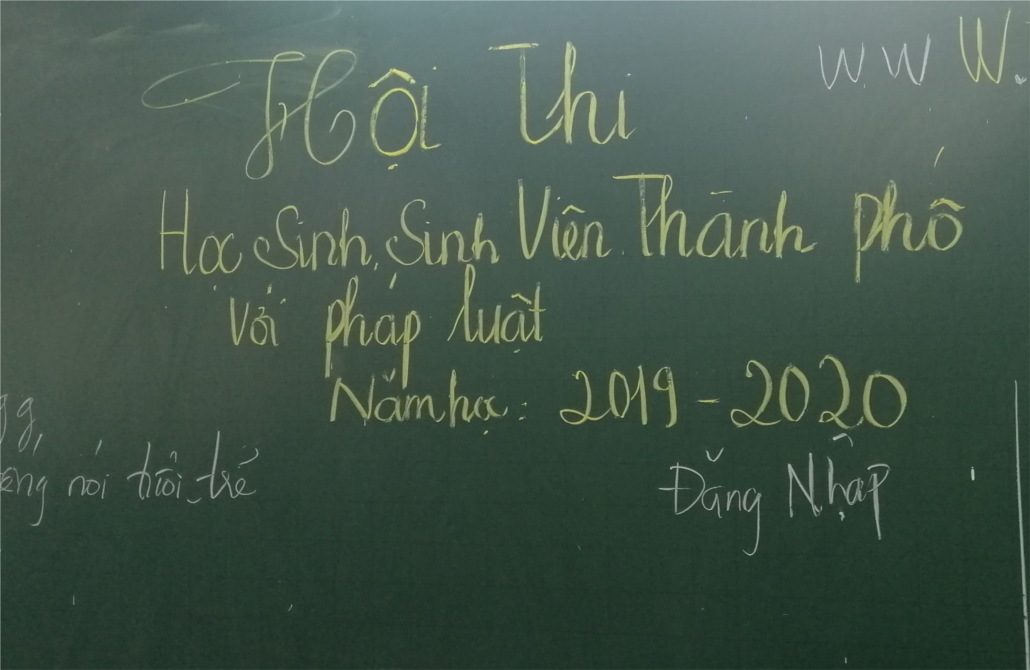 Hội Thi
WWW.
Học Sinh, Sinh Viên Thành phố
với pháp luật
Năm học: 2019-2020
nói tuổi trẻ
Đăng Nhập